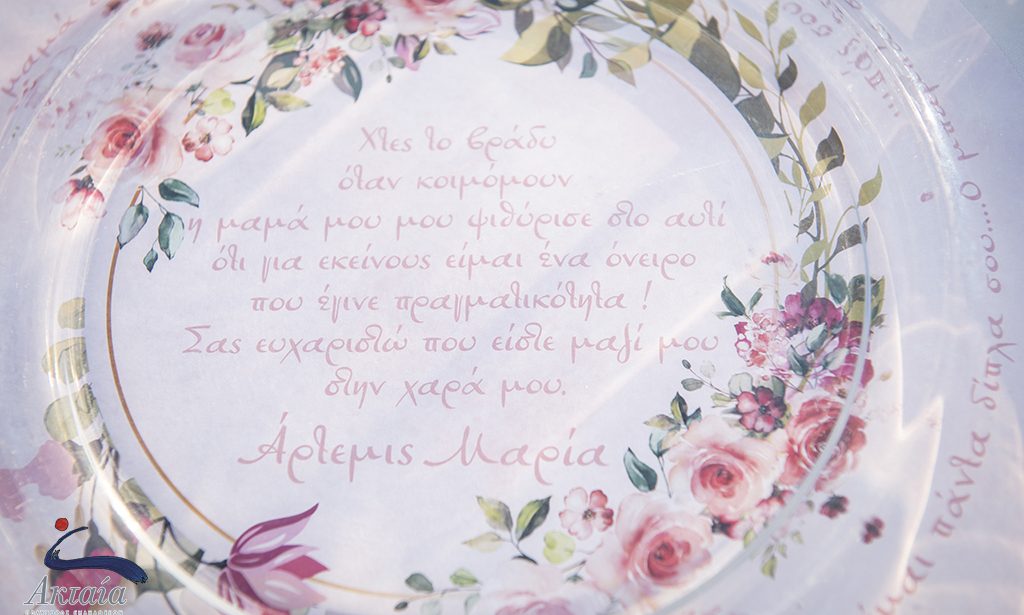 Χτες το βράδυ
όταν κοιμόμουν
η μαμά μου μου ψιθύρισε στο αυτί
ότι για εκείνους είμαι ένα όνειρο
που έγινε πραγματικότητα !
Σας ευχαριστώ που είστε μαζί μου
στην χαρά μου.
Άρτεμις Μαρία
πάντα δίπλα σου...ο
Ακταία